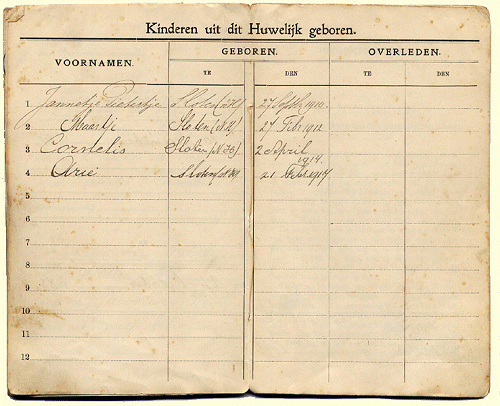 Kinderen uit dit Huwelijk geboren.
VOORNAMEN. GEBOREN. OVERLEDEN.
TE DEN TE DEN
1 Jannetje Pietertje Sloten (NH) 27 1910.
2 Maartje Sloten (NH) 27 Febr 1912
3 Cornelis Sloten (NH) 2 April 1914.
4 Arie Sloten (NH) 21 Febr 1917
5
6
7
8
9
10
11
12